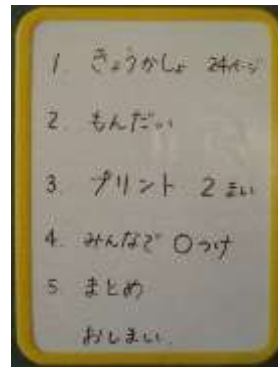 1. きょうかしょ 24ページ
2. もんだい
3 プリント 2まい
4. みんなで ○つけ
5 まとめ
おしまい